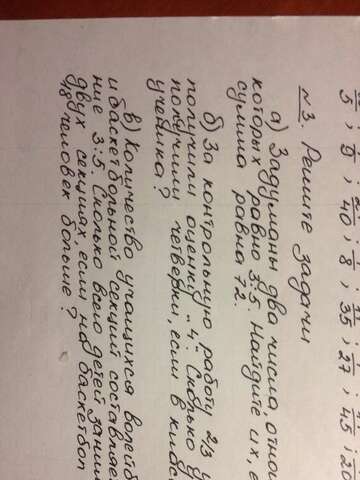 5 ; 9 ; 40 ; 8 ; 35 ; 27 ; 45 ; 20
№3. Решите задачи
а) Задуманы два числа, отнош
которых равно 3:5. Найдите их, е
сумма равна 72.
б) За контрольную работу 2/3 у
получили оценку „4". Сколько у
получили четверки, если в клас
ученика?
в) Количество учащихся волейб
и баскетбольной секций составляе
ние 3:5. Сколько всего детей заним
двух секциях, если на баскетбол
18 человек больше?